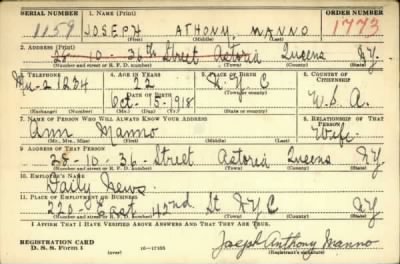 SERIAL NUMBER 1. NAME (Print) ORDER NUMBER
1159 JOSEPH ATHONY MANNO 1773
(First) (Middle) (Last)
2. ADDRESS (Print)
28-10-36th Street Astoria Queens NY.
(Number and street or R. F. D. number) (Town) (County) (State)
3. TELEPHONE 4. AGE IN YEARS 5. PLACE OF BIRTH 6. COUNTRY OF CITIZENSHIP
Mu-2 1234 22 N.Y.C
DATE OF BIRTH (Town or county)
Oct-5-1918 U.S.A.
(Exchange) (Number) (Mo.) (Day) (Yr.) (State or country)
7. NAME OF PERSON WHO WILL ALWAYS KNOW YOUR ADDRESS 8. RELATIONSHIP OF THAT PERSON
Ann Manno Wife
(Mr., Mrs., Miss) (First) (Middle) (Last)
9. ADDRESS OF THAT PERSON
28-10-36-Street Astoria Queens NY
(Number and street or R. F. D. number) (Town) (County) (State)
10. EMPLOYER'S NAME
Daily News.
11. PLACE OF EMPLOYMENT OR BUSINESS
220-East 42nd St N.Y.C NY
(Number and street or R. F. D. number) (Town) (County) (State)
I AFFIRM THAT I HAVE VERIFIED ABOVE ANSWERS AND THAT THEY ARE TRUE.
REGISTRATION CARD
D. S. S. Form 1 (over) 16-17105 Joseph Anthony Manno
(Registrant's signature)